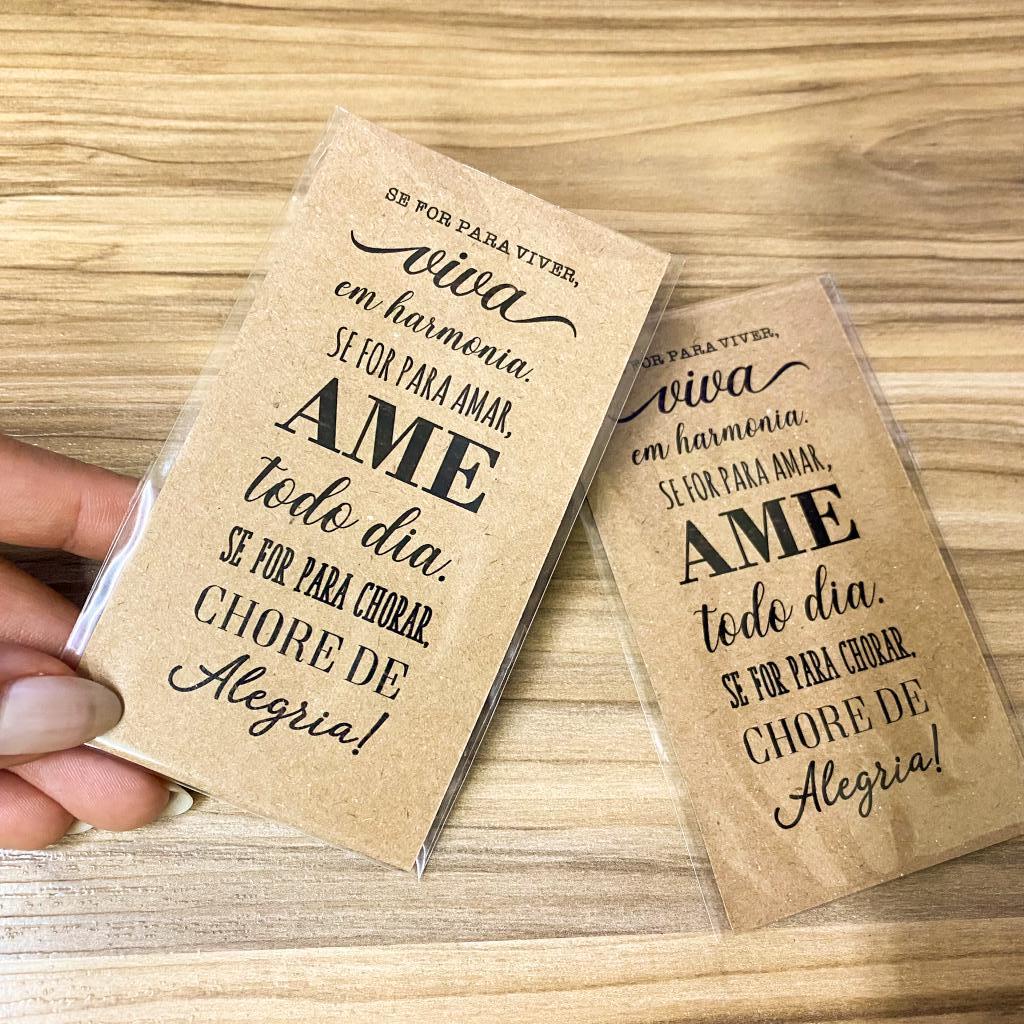 SE FOR PARA VIVER,
viva
em harmonia.
SE FOR PARA AMAR,
AME
todo dia.
SE FOR PARA CHORAR,
CHORE DE
Alegria!
FOR PARA VIVER,
viva
em harmonia.
SE FOR PARA AMAR,
AME
todo dia.
SE FOR PARA CHORAR,
CHORE DE
Alegria!